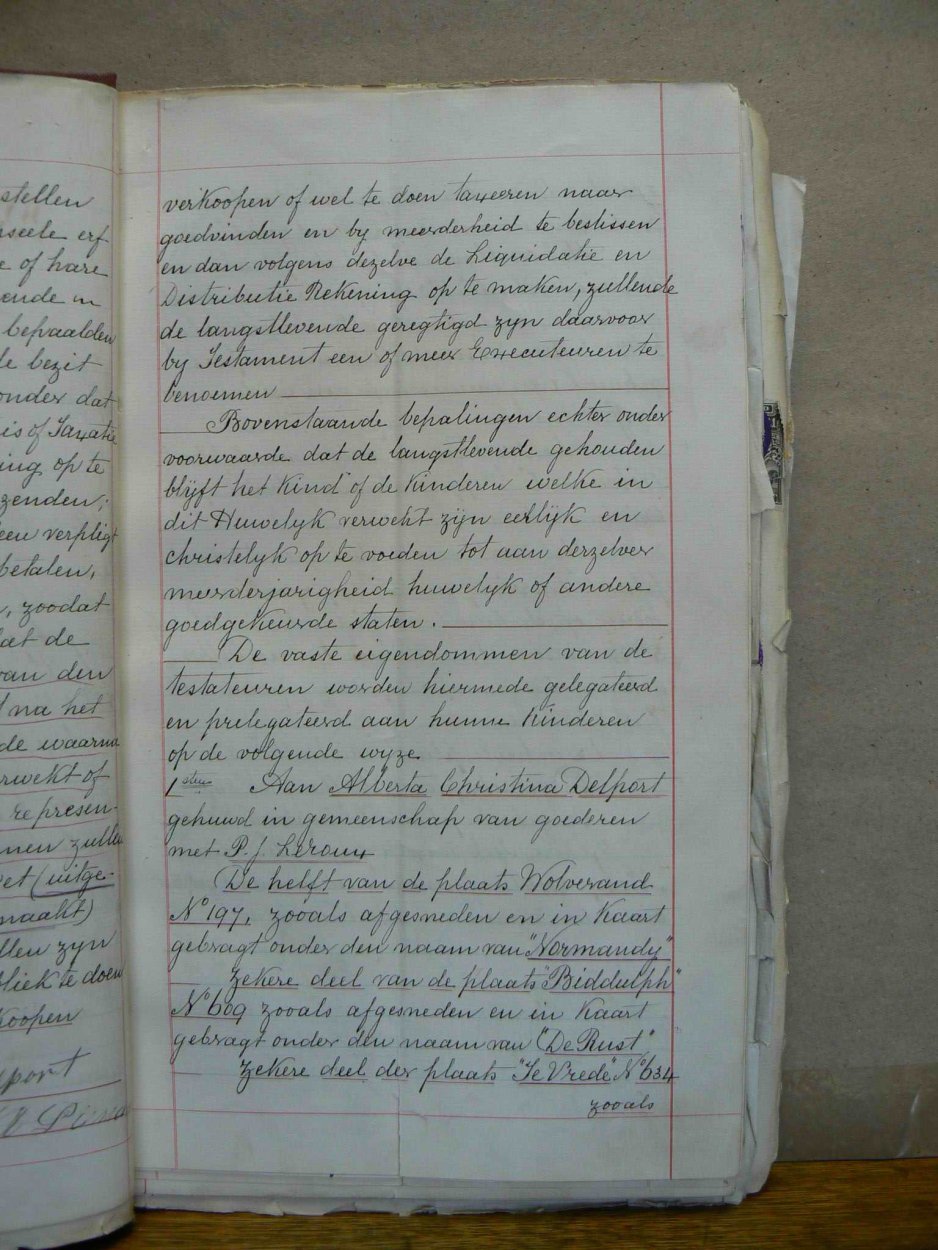 stellen
erf
of hare
ende in
bepaalden
de bezit
onder dat
is of Taxatie
ing op te
zenden;
een verpligt
betalen,
, zoodat
dat de
van den
na het
de waarna
rwekt of
represen-
nen zullen
et (uitge-
maakt)
llen zyn
bliek te doen
koopen
port
verkoopen of wel te doen taxeeren naar
goedvinden en by meerderheid te beslissen
en dan volgens dezelve de Liquidatie en
Distributie Rekening op te maken, zullende
de langstlevende geregtigd zyn daarvoor
by Testament een of meer Executeuren te
benoemen
Bovenstaande bepalingen echter onder
voorwaarde dat de langstlevende gehouden
blyft het Kind of de Kinderen welke in
dit Huwelyk verwekt zijn eerlyk en
christelyk op te voeden tot aan derzelver
meerderjarigheid huwelyk of andere
goedgekeurde staten.
De vaste eigendommen van de
testateuren worden hiermede gelegateerd
en prelegateerd aan hunne Kinderen
op de volgende wyze
1sten Aan Alberta Christina Delport
gehuwd in gemeenschap van goederen
met P. J. Leroux
De helft van de plaats Wolverand
No 197, zooals afgesneden en in Kaart
gebragt onder den naam van "Normandy"
zekere deel van de plaats "Biddulph"
No 609 zooals afgesneden en in Kaart
gebragt onder den naam van "De Rust"
Zekere deel der plaats "Te Vrede" No 634
zooals